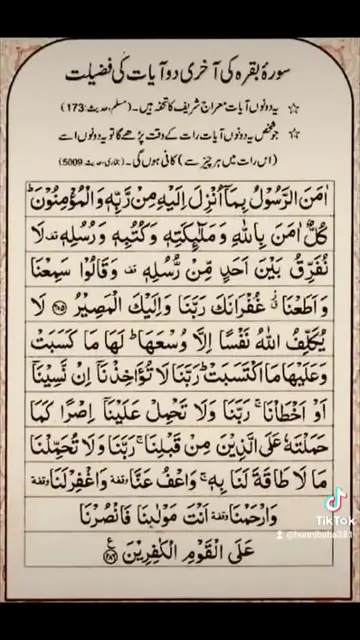 سورۂ بقرہ کی آخری دو آیات کی فضیلت
☆ یہ دونوں آیات معراج شریف کا تحفہ ہیں۔ (مسلم، حدیث: 173)
☆ جو شخص یہ دونوں آیات رات کے وقت پڑھے گا تو یہ دونوں اسے
(اس رات میں ہر چیز سے) کافی ہوں گی۔ (بخاری، حدیث 5009)
اٰمَنَ الرَّسُوْلُ بِمَاۤ اُنْزِلَ اِلَیْهِ مِنْ رَّبِّهٖ وَ الْمُؤْمِنُوْنَؕ
كُلٌّ اٰمَنَ بِاللّٰهِ وَ مَلٰٓىِٕكَتِهٖ وَ كُتُبِهٖ وَ رُسُلِهٖ لَا
نُفَرِّقُ بَیْنَ اَحَدٍ مِّنْ رُّسُلِهٖ وَ قَالُوْا سَمِعْنَا
وَ اَطَعْنَا غُفْرَانَكَ رَبَّنَا وَ اِلَیْكَ الْمَصِیْرُ ﴿۲۸۵﴾ لَا
یُكَلِّفُ اللّٰهُ نَفْسًا اِلَّا وُسْعَهَاؕ لَهَا مَا كَسَبَتْ
وَ عَلَیْهَا مَا اكْتَسَبَتْؕ رَبَّنَا لَا تُؤَاخِذْنَاۤ اِنْ نَّسِیْنَاۤ
اَوْ اَخْطَاْنَاۚ رَبَّنَا وَ لَا تَحْمِلْ عَلَیْنَاۤ اِصْرًا كَمَا
حَمَلْتَهٗ عَلَى الَّذِیْنَ مِنْ قَبْلِنَاۚ رَبَّنَا وَ لَا تُحَمِّلْنَا
مَا لَا طَاقَةَ لَنَا بِهٖۚ وَ اعْفُ عَنَّا وقفة وَ اغْفِرْ لَنَا وقفة
وَ ارْحَمْنَا وقفة اَنْتَ مَوْلٰىنَا فَانْصُرْنَا
عَلَى الْقَوْمِ الْكٰفِرِیْنَ ﴿۲۸۶﴾ ع
TikTok
@hunnibaba381